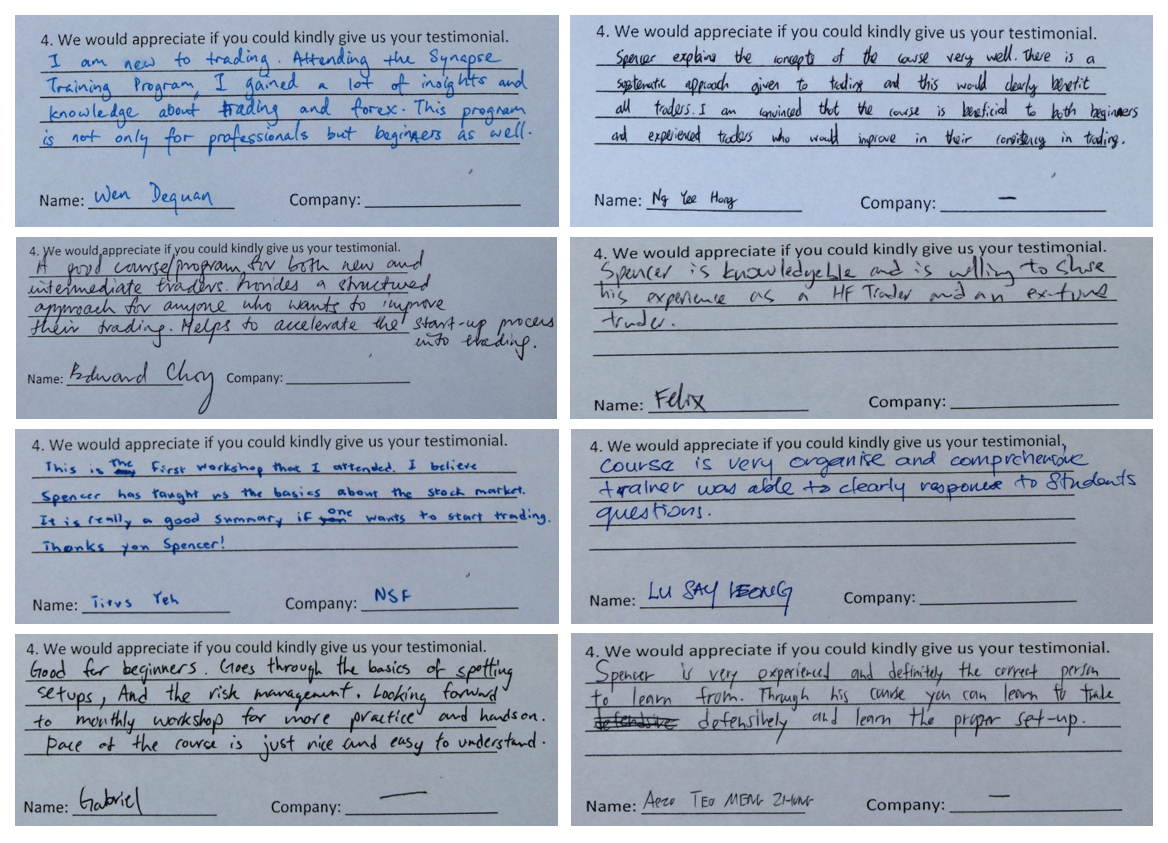 4. We would appreciate if you could kindly give us your testimonial.
I am new to trading. Attending the Synapse
Training Program, I gained a lot of insights and
knowledge about trading and forex. This program
is not only for professionals but beginners as well.
Name: Wen Dequan Company:
4. We would appreciate if you could kindly give us your testimonial.
Spencer explains the concepts of the course very well. There is a
systematic approach given to trading and this would clearly benefit
all traders. I am convinced that the course is beneficial to both beginners
and experienced traders who would improve in their consistency in trading.
Name: Ng Yee Hong Company: —
4. We would appreciate if you could kindly give us your testimonial.
A good course/program for both new and
intermediate traders. Provides a structured
approach for anyone who wants to improve
their trading. Helps to accelerate the start-up process
into trading.
Name: Edward Choy Company:
4. We would appreciate if you could kindly give us your testimonial.
Spencer is knowledgeable and is willing to share
his experience as a HF Trader and an ex-fund
trader.
Name: Felix Company:
4. We would appreciate if you could kindly give us your testimonial.
This is the first workshop that I attended. I believe
Spencer has taught us the basics about the stock market.
It is really a good summary if one wants to start trading.
Thanks you Spencer!
Name: Titus Yeh Company: NSF
4. We would appreciate if you could kindly give us your testimonial,
course is very organise and comprehensive
trainer was able to clearly response to students
questions.
Name: LU SAY LEONG Company:
4. We would appreciate if you could kindly give us your testimonial.
Good for beginners. Goes through the basics of spotting
setups, And the risk management. Looking forward
to monthly workshop for more practice and handson.
Pace of the course is just nice and easy to understand.
Name: Gabriel Company: —
4. We would appreciate if you could kindly give us your testimonial.
Spencer is very experienced and definitely the correct person
to learn from. Through his course you can learn to trade
defensively and learn the proper set-up.
Name: TEO MENG ZHONG Company: —